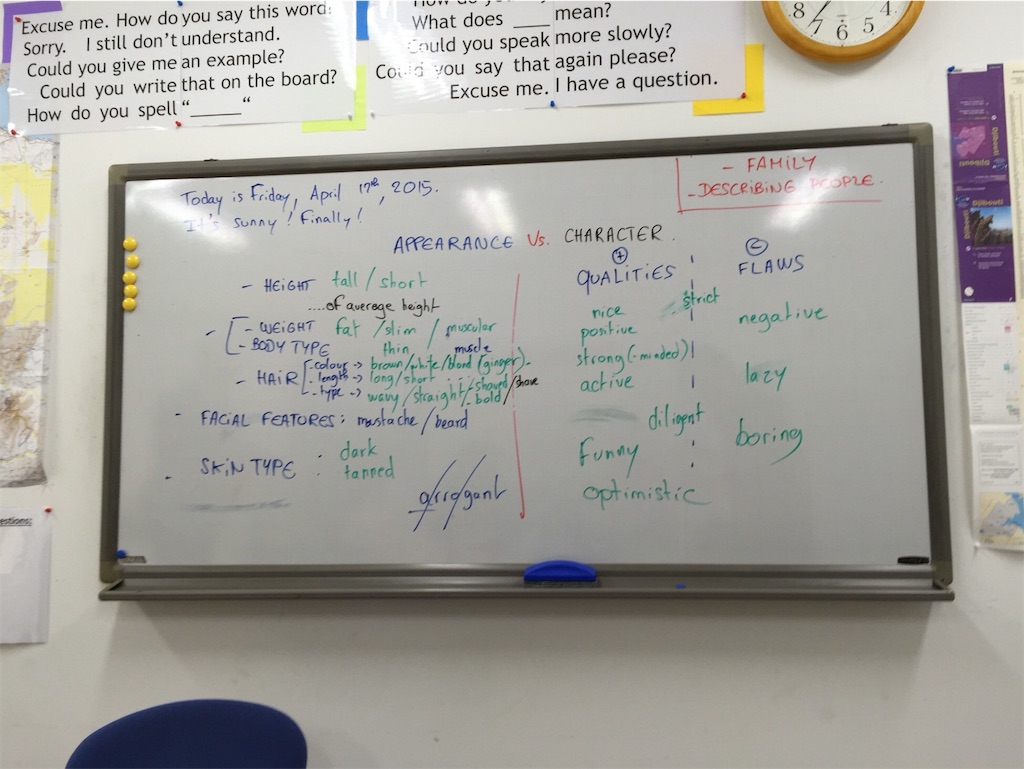 Excuse me. How do you say this word?
Sorry. I still don't understand.
Could you give me an example?
Could you write that on the board?
How do you spell "_____"
What does ____ mean?
Could you speak more slowly?
Could you say that again please?
Excuse me. I have a question.
8 7 6 5 4
- FAMILY
- DESCRIBING PEOPLE.
Today is Friday, April 17th, 2015.
It's sunny! Finally!
APPEARANCE Vs. CHARACTER.
- HEIGHT tall / short
....of average height
- WEIGHT fat / slim / muscular
- BODY TYPE thin muscle
- HAIR - colour → brown/white/blond (ginger).
- length → long/short ....
- type → wavy/straight/- shaved / shave
- bold
- FACIAL FEATURES : moustache / beard
- SKIN TYPE : dark
tanned
arrogant
+ QUALITIES
nice strict
positive
strong (-minded)
active
diligent
funny
optimistic
- FLAWS
negative
lazy
boring
Djibouti
Djibouti
Djibouti
estions: